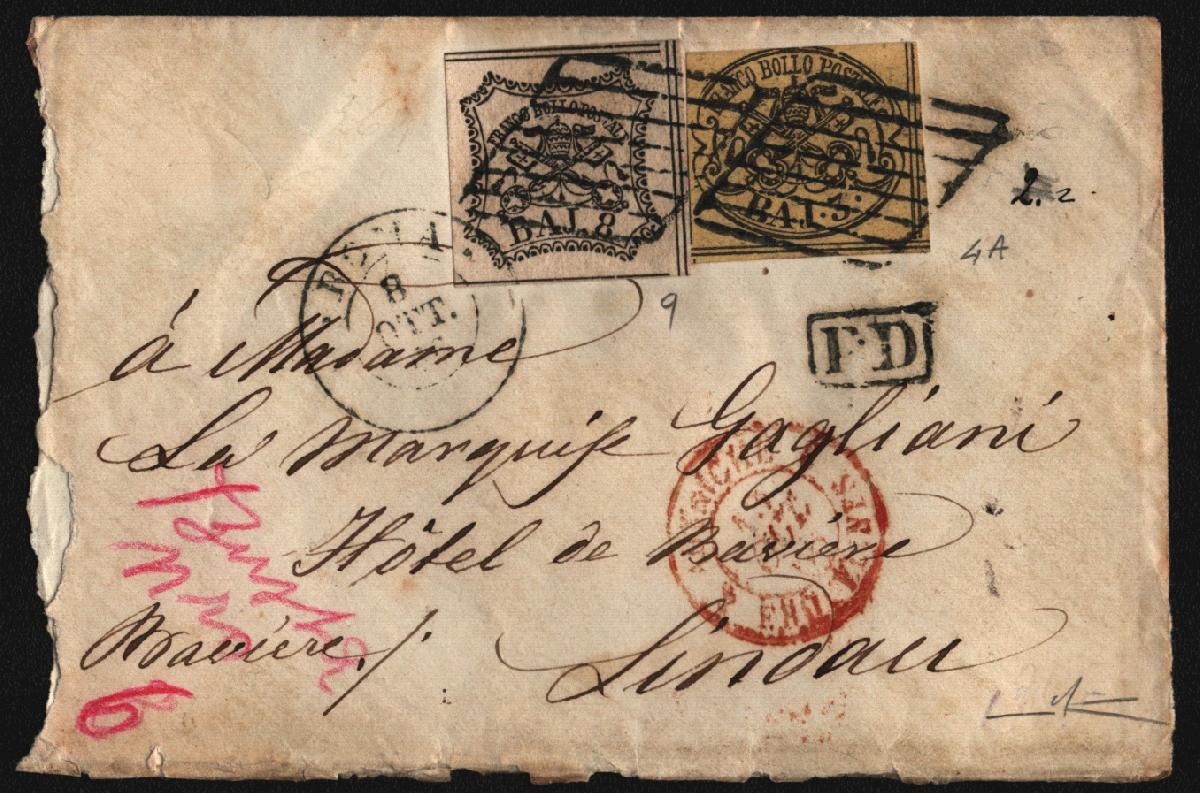 FRANCO BOLLO POSTALE
BAJ. 8
FRANCO BOLLO POSTALE
BAJ. 3
2. 2
4A
9
ROMA
8
OTT.
P.D
à Madame
La Marquise Gagliani
Hôtel de Bavière
Lindau
Bavière /
6